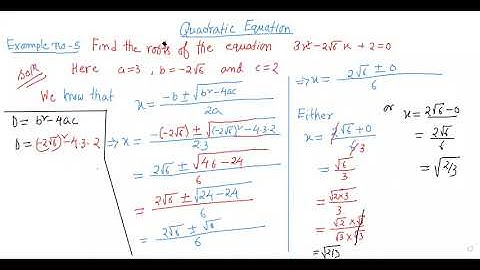 Quadratic Equation
Example no-5 Find the roots of the equation 3x²-2√6x+2=0
Soln Here a=3, b=-2√6 and c=2
We know that
D = b²-4ac
D = (-2√6)²-4.3.2
x = -b ± √b²-4ac / 2a
⇒ x = -(-2√6) ± √(-2√6)²-4.3.2 / 2.3
= 2√6 ± √4.6-24 / 6
= 2√6 ± √24-24 / 6
= 2√6 ± √0 / 6
⇒ x = 2√6 ± 0 / 6
Either
x = 2√6+0 / 6 3
= √6 / 3
= √2×3 / 3
= √2 × √3 / √3 × √3
= √2/3
or x = 2√6-0 / 6
= 2√6 / 6
= √2/3